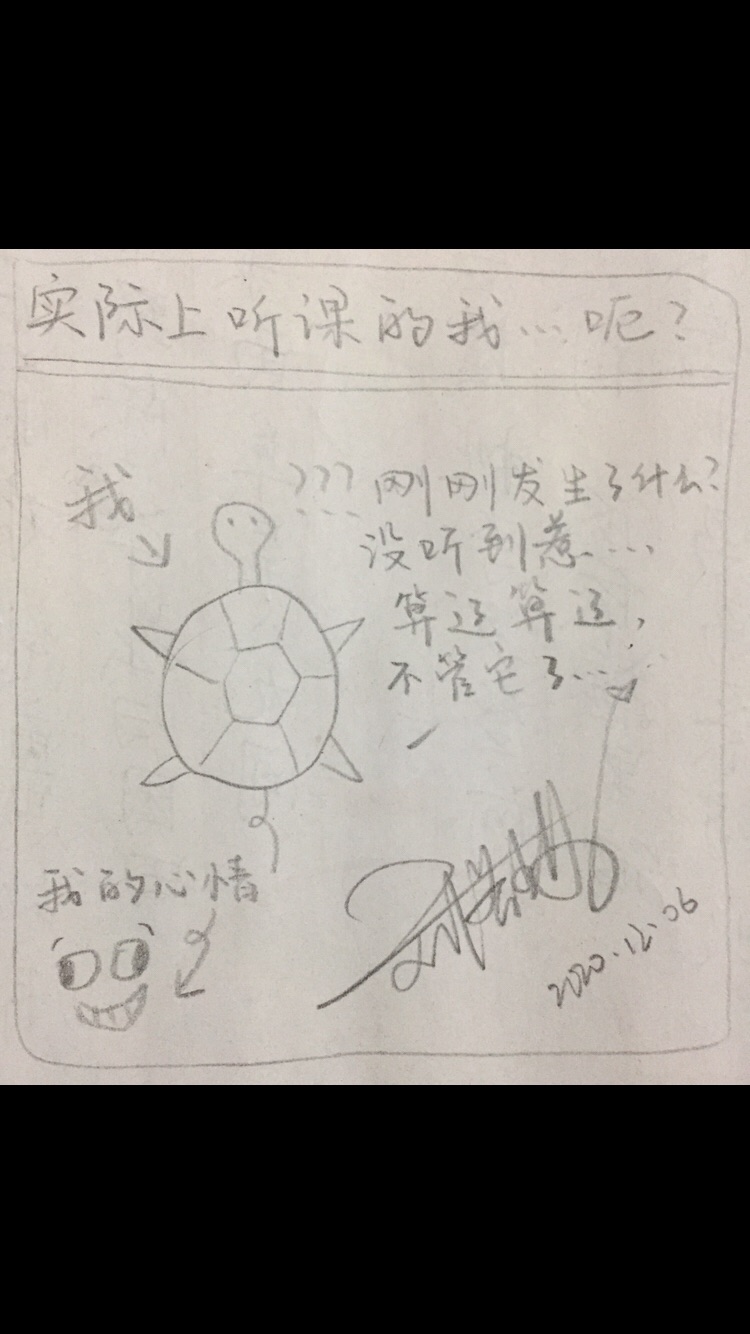 实际上听课的我…呃?
我
???刚刚发生了什么?
没听到惹……
算这算这,
不管它了……
我的心情
2020.12.06